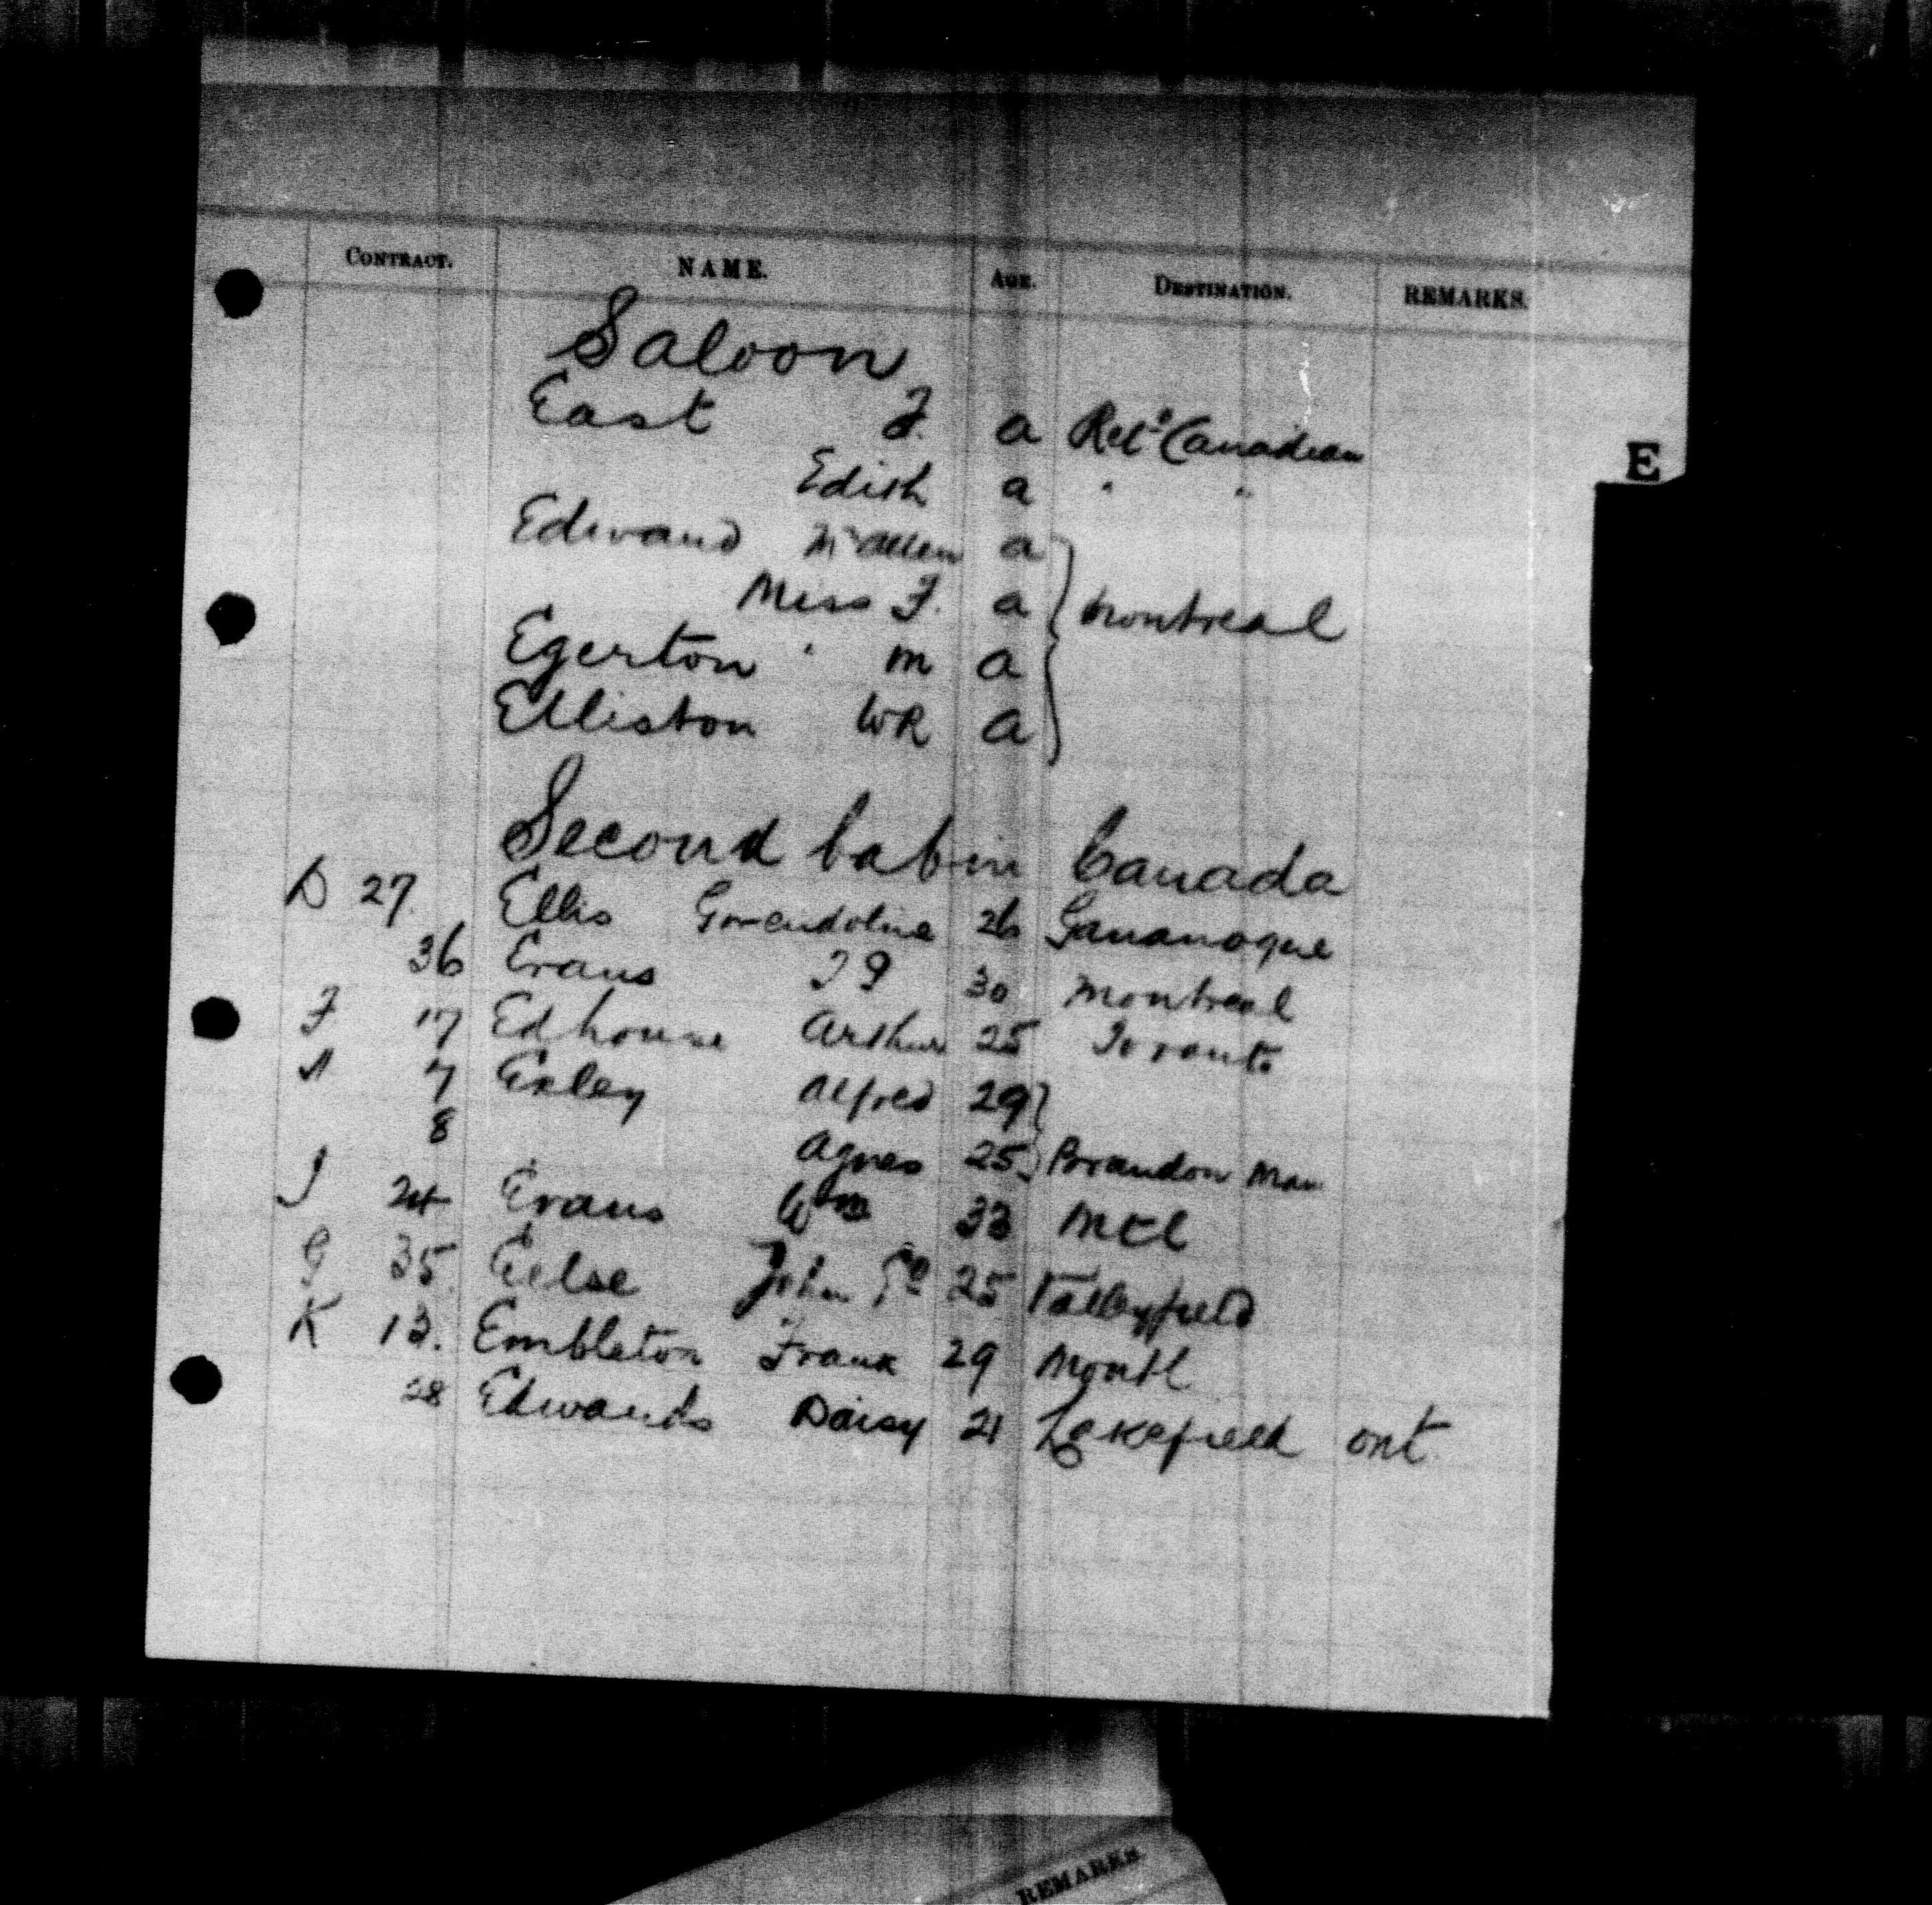 CONTRACT. NAME. AGE. DESTINATION. REMARKS.
Saloon
East F. a Retd Canadian
E
Edith a " "
Edward Mr Allen a
Miss F. a Montreal
Egerton " M a
Elliston WR a
Second Cabin Canada
D 27. Ellis Gwendoline 26 Gananoque
36 Evans 30 Montreal
F 17 Edhouse Arthur 25 Toronto
7 Exley Alfred 29
8 Agnes 25 Brandon Man
J 24 Evans Wm 33 Mtl
G 35 Eelse John 25 Valleyfield
K 13. Embleton Frank 29 Montl
28 Edwards Daisy 21 Lakefield Ont
REMARKS.